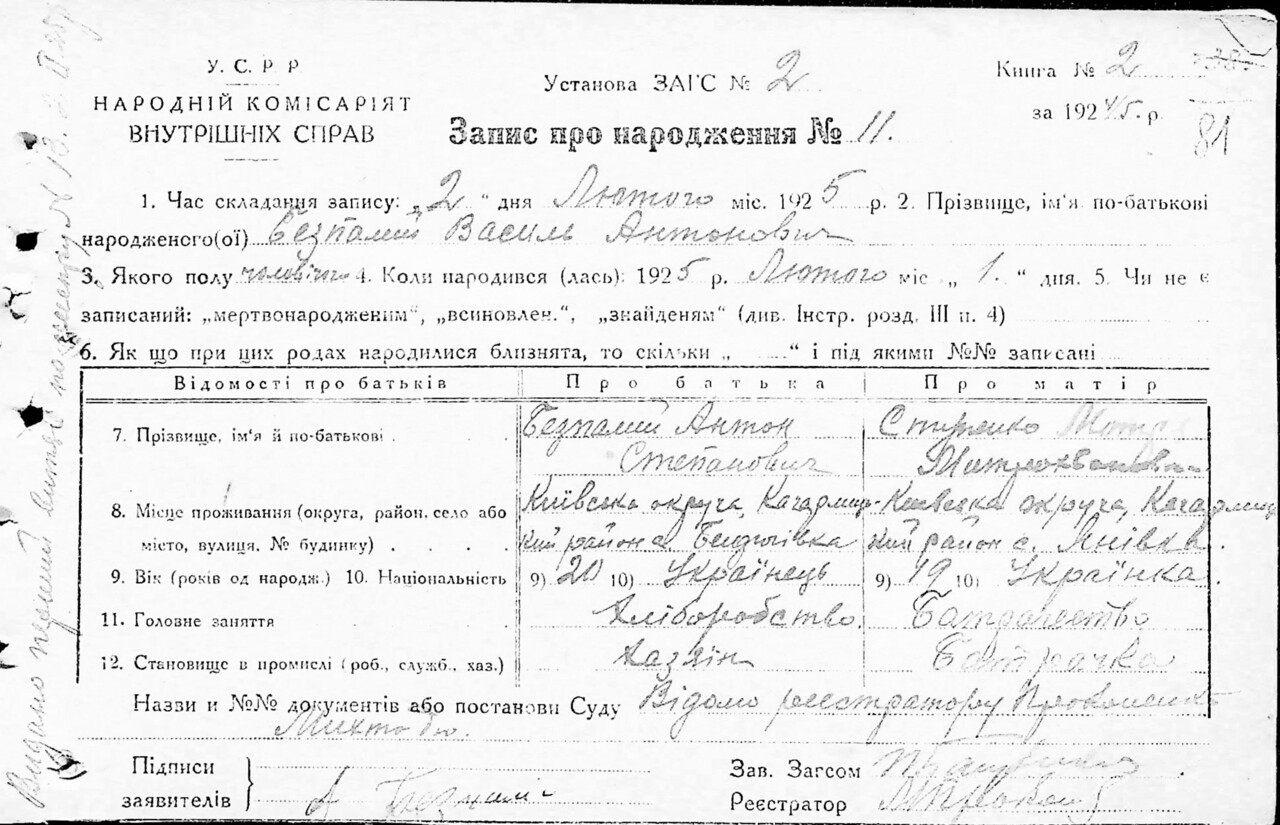 У. С. Р Р
НАРОДНІЙ КОМІСАРІЯТ
ВНУТРІШНІХ СПРАВ
Установа ЗАГС № 2
Книга № 2
за 1924/5. р.
81
Запис про народження № 11.
1. Час складання запису: „2" дня Лютого міс. 1925 р. 2. Прізвище, ім'я по-батькові
народженого(ої) Безпалий Василь Антонович
3. Якого полу чоловічого 4. Коли народився (лась): 1925 р. Лютого міс „ 1. " дня. 5. Чи не є
записаний: „мертвонародженим", „всиновлен.", „знайденям" (див. Інстр. розд. III п. 4)
6. Як що при цих родах народилися близнята, то скільки „ ..... " і під якими №№ записані
Відомості про батьків Про батька Про матір
7. Прізвище, ім'я й по-батькові . Безпалий Антон Степанович
8. Місце проживання (округа, район, село або Київська округа, Київська округа,
місто, вулиця, № будинку) . . . . кий район с. кий район с. Янівка.
9. Вік (років од народж.) 10. Національність 9) 20 10) Українець 9) 19 10) Українка.
11. Головне заняття Хліборобство
12. Становище в промислі (роб., служб., хаз.) Хазяїн Батрачка
Назви и №№ документів або постанови Суду Відомо реєстратору Прокопенко
Підписи
заявителів
Зав. Загсом
Реєстратор